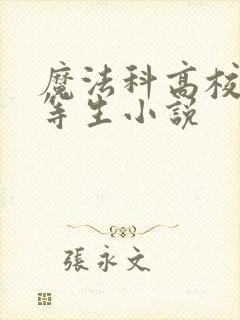 魔法科高校
等生小說
張永文